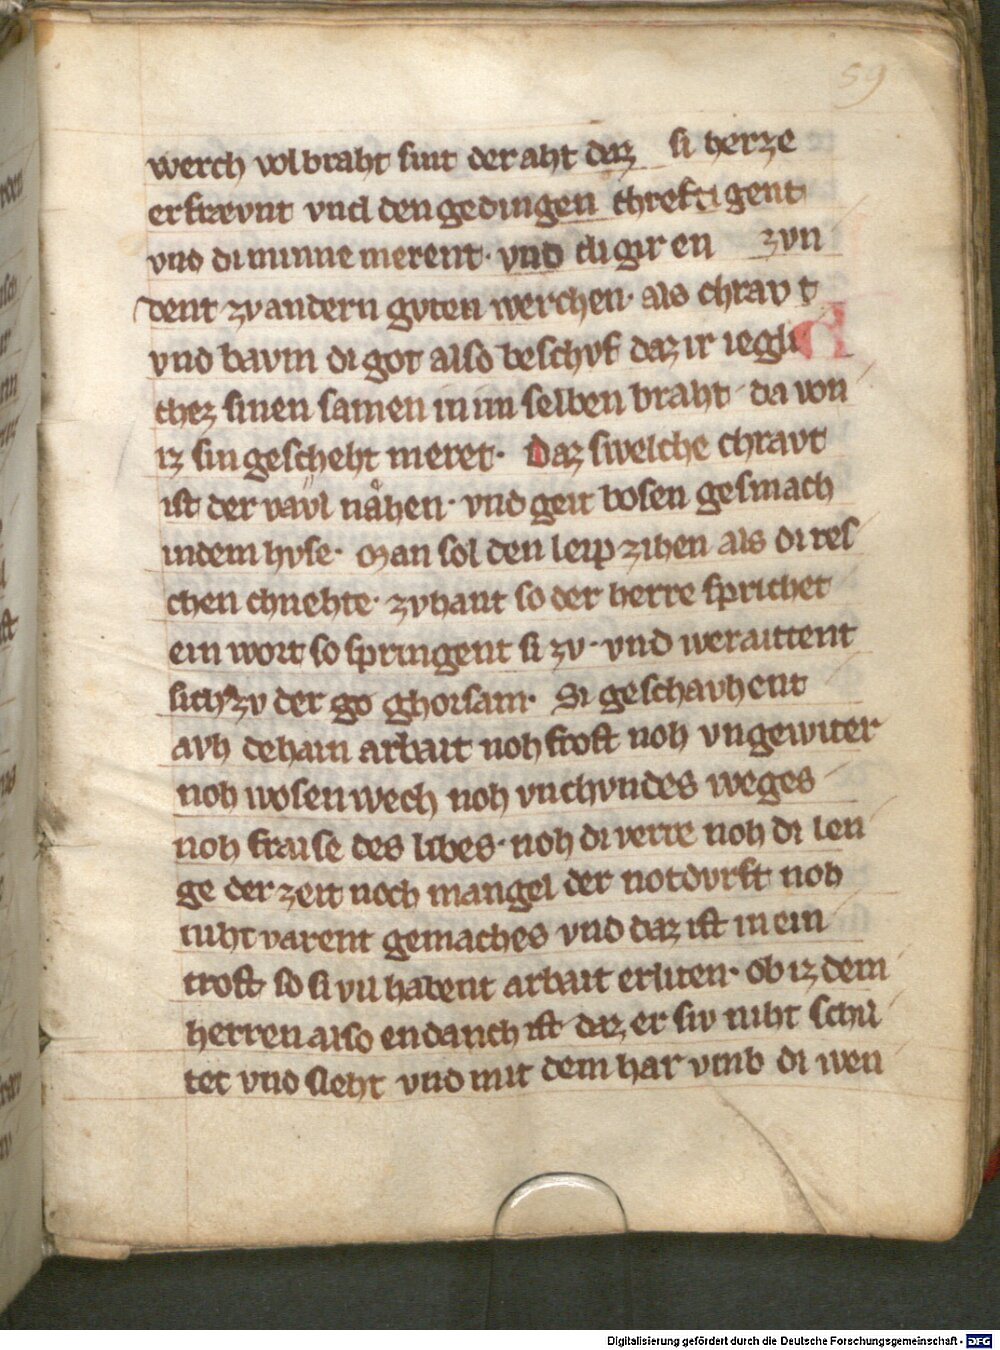 59
werch volbraht sint der aht daz si herze
erfrevnt vnd den gedingen chreftigent
vnd di minne merent · vnd di gir en zvn
dent zv andern gvten werchen · als chravt
vnd bavm di got also beschvf daz ir iegli
chez sinen samen in im selben braht · da von
iz sin gescheht meret · Daz swelche chravt
ist der vavl nahen · vnd geit bosen gesmach
in dem hvse · Man sol den leip zihen als di res
chen chnehte · zvhant so der herre sprichet
ein wort so springent si zv · vnd weraittent
sich zv der go ghorsam · Si geschavhent
avh dehain arbait noh frost noh vngewiter
noh wosen wech noh vnchvndes weges
noh fraise des libes · noh di verre noh di len
ge der zeit noch mangel der notdvrft noh
niht varent gemaches vnd daz ist in ein
trost so si vil habent arbait erliten · ob iz dem
herren also endanch ist daz er siv niht schil
tet vnd sleht vnd mit dem har vmb di wen
Digitalisierung gefördert durch die Deutsche Forschungsgemeinschaft - DFG